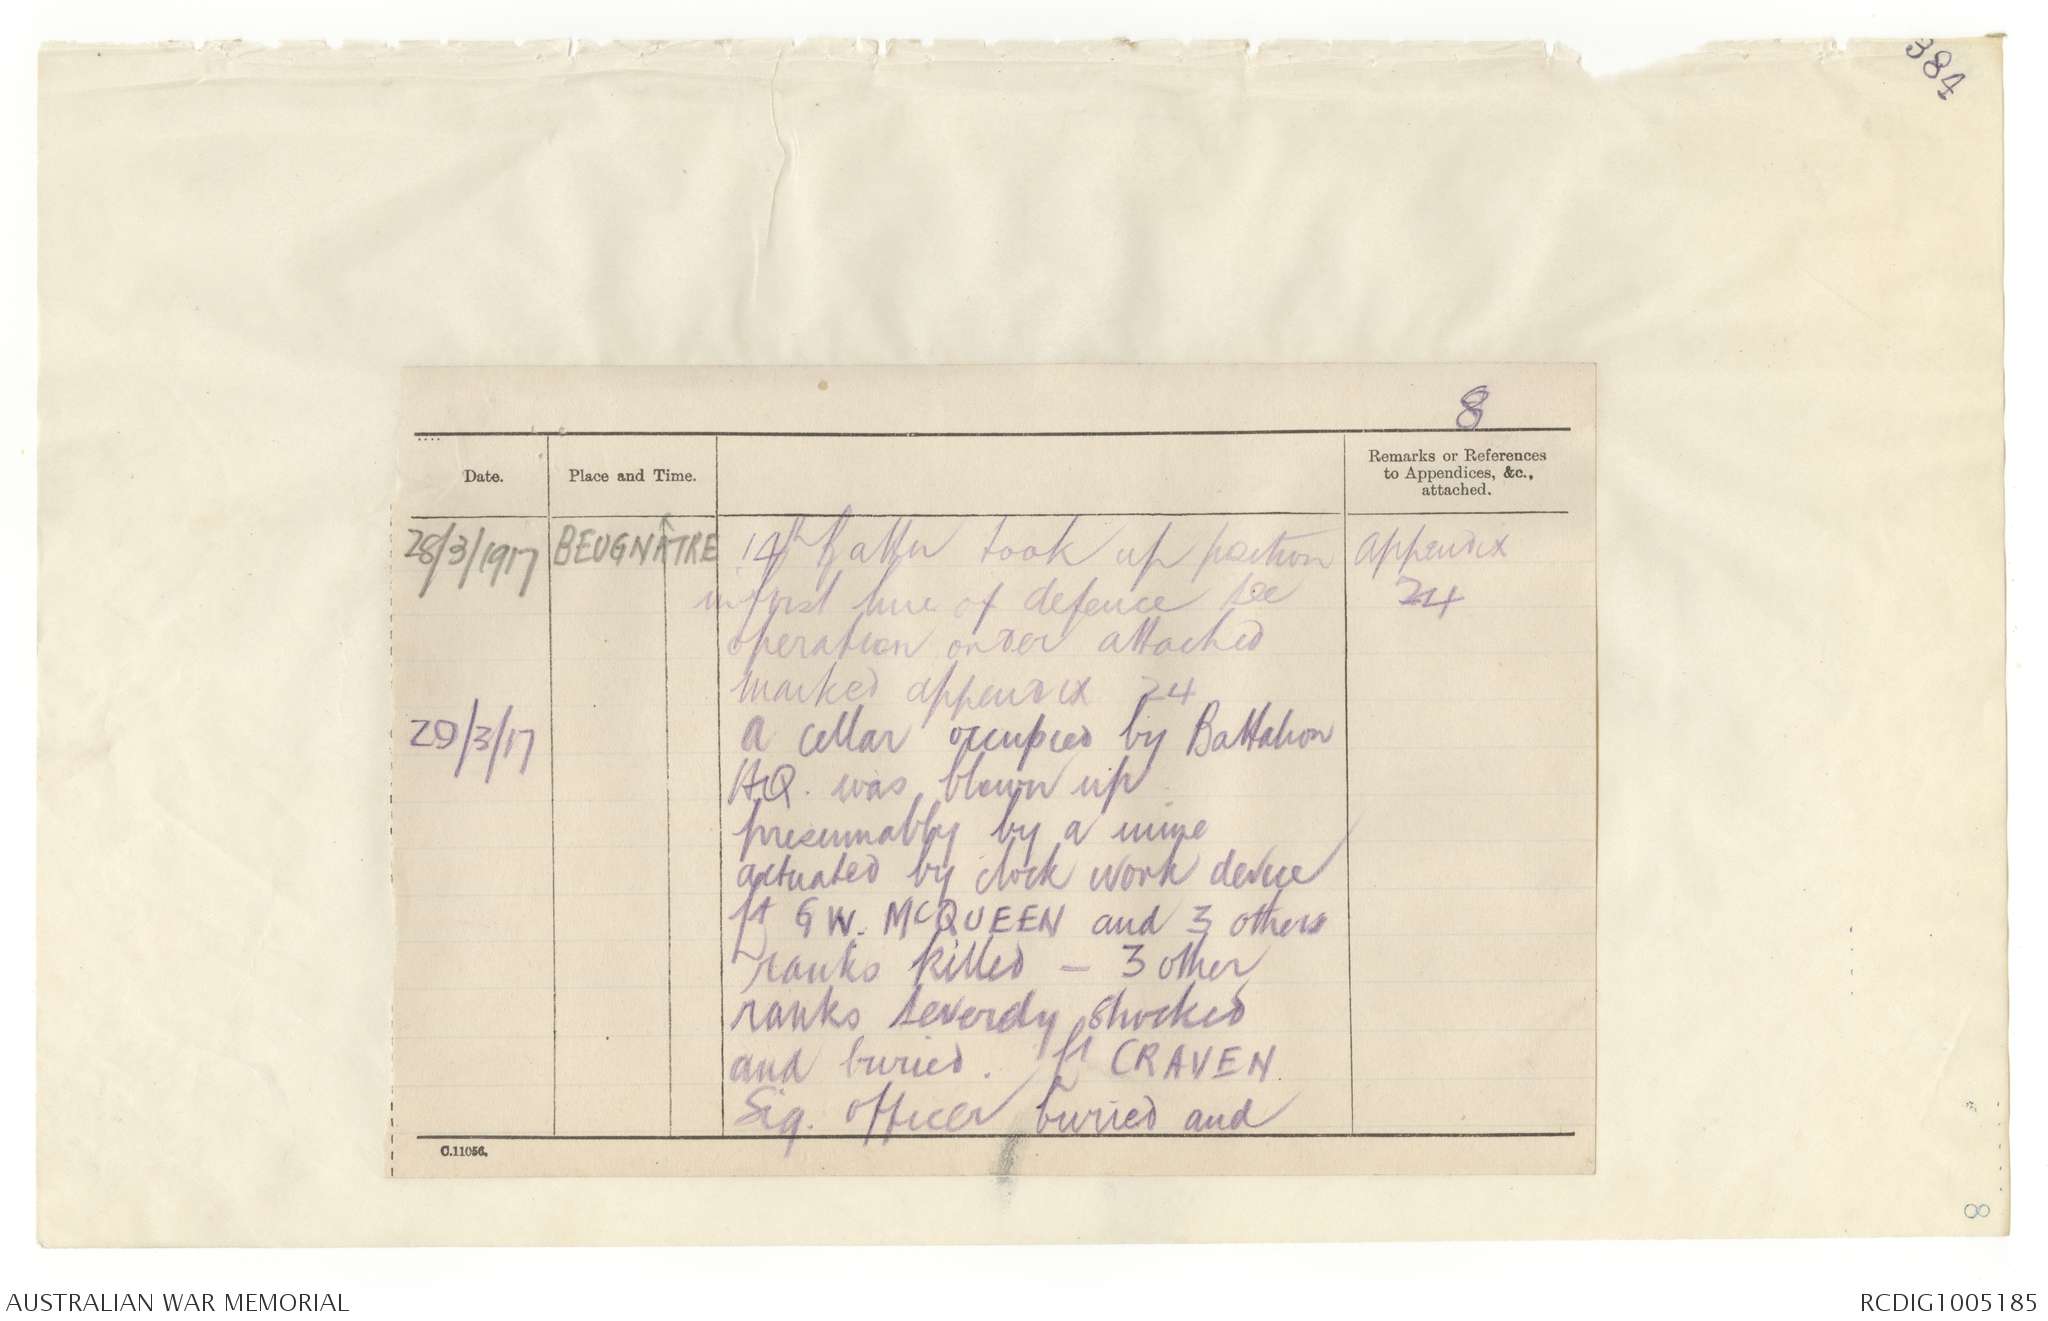 384
8
Date.
Place and Time.
Remarks or References
to Appendices, &c.,
attached.
28/3/1917 BEUGNATRE 14th Battn took up position appendix
in first line of defence see 24
operation order attached
marked appendix 24
29/3/17 a cellar occupied by Battalion
HQ. was blown up
presumably by a mine
actuated by clock work device
Lt GW. McQUEEN and 3 others
ranks killed - 3 other
ranks severely shocked
and buried. Lt CRAVEN
Sig. officer buried and
C.11056.
8
AUSTRALIAN WAR MEMORIAL
RCDIG1005185